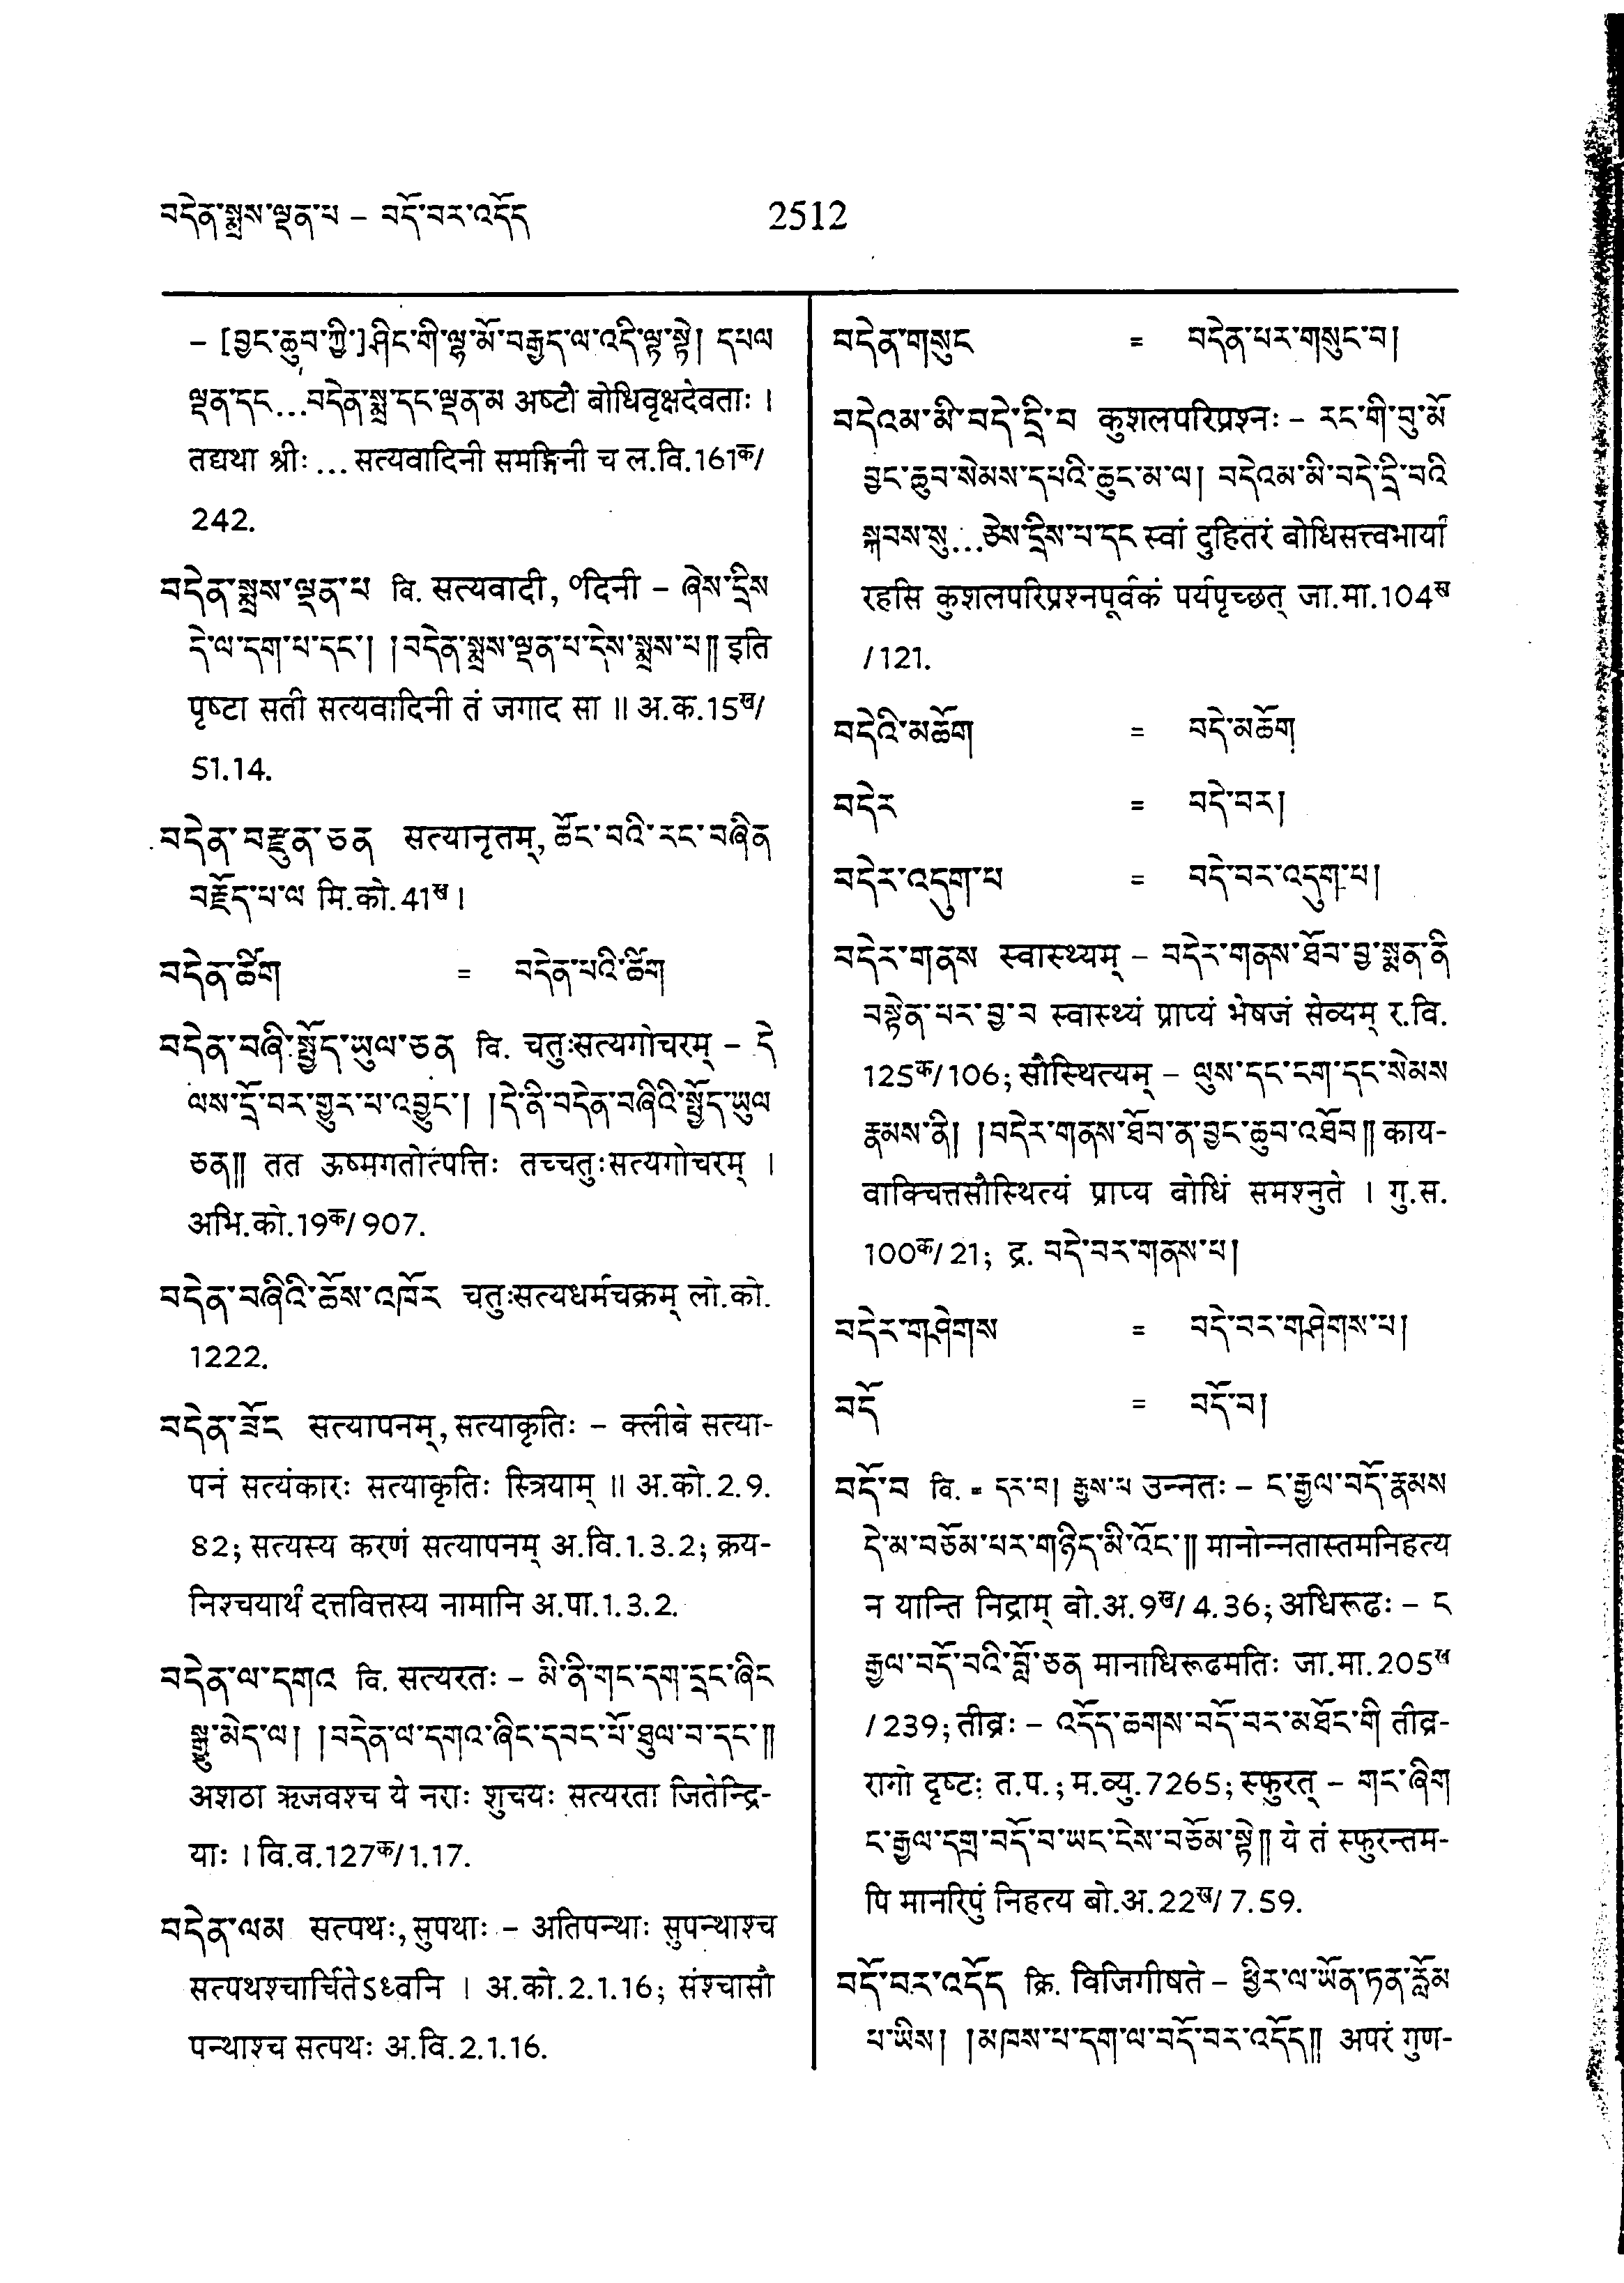 བདེན་སྨྲས་ལྡན་པ – བདོ་བར་འདོད
2512
– [བྱང་ཆུབ་ཀྱི་]ཤིང་གི་ལྷ་མོ་བརྒྱད་ལ་འདི་ལྟ་སྟེ། དཔལ
ལྡན་དང...བདེན་སྨྲ་དང་ལྡན་མ अष्टौ बोधिवृक्षदेवताः ।
तद्यथा श्रीः ... सत्यवादिनी समङ्गिनी च ल.वि.161क/
242.
བདེན་སྨྲས་ལྡན་པ वि. सत्यवादी, ०दिनी – ཞེས་དྲིས
དེ་ལ་དག་པ་དང་། །བདེན་སྨྲས་ལྡན་པ་དེས་སྨྲས་པ༎ इति
पृष्टा सती सत्यवादिनी तं जगाद सा ॥ अ.क.15ख/
51.14.
བདེན་བརྫུན་ཅན सत्यानृतम्, ཚོང་བའི་རང་བཞིན
བརྗོད་པ་ལ मि.को.41ख ।
བདེན་ཚིག = བདེན་པའི་ཚིག
བདེན་བཞི་སྤྱོད་ཡུལ་ཅན वि. चतुःसत्यगोचरम् – དེ
ལས་དྲོ་བར་གྱུར་པ་འབྱུང་། །དེ་ནི་བདེན་བཞིའི་སྤྱོད་ཡུལ
ཅན༎ तत ऊष्मगतोत्पत्तिः तच्चतुःसत्यगोचरम् ।
अभि.को.19क/907.
བདེན་བཞིའི་ཆོས་འཁོར चतुःसत्यधर्मचक्रम् लो.को.
1222.
བདེན་ཟོང सत्यापनम्, सत्याकृतिः – क्लीबे सत्या-
पनं सत्यंकारः सत्याकृतिः स्त्रियाम् ॥ अ.को.2.9.
82; सत्यस्य करणं सत्यापनम् अ.वि.1.3.2; क्रय-
निश्चयार्थं दत्तवित्तस्य नामानि अ.पा.1.3.2.
བདེན་ལ་དགའ वि. सत्यरतः – མི་ནི་གང་དག་དྲང་ཞིང
སྒྱུ་མེད་ལ། །བདེན་ལ་དགའ་ཞིང་དབང་པོ་ཐུལ་བ་དང་༎
अशठा ऋजवश्च ये नराः शुचयः सत्यरता जितेन्द्रि-
याः । वि.व.127क/1.17.
བདེན་ལམ सत्पथः, सुपथाः – अतिपन्थाः सुपन्थाश्च
सत्पथश्चार्चितेऽध्वनि । अ.को.2.1.16; संश्चासौ
पन्थाश्च सत्पथः अ.वि.2.1.16.
བདེན་གསུང = བདེན་པར་གསུང་བ།
བདེའམ་མི་བདེ་དྲི་བ कुशलपरिप्रश्नः – རང་གི་བུ་མོ
བྱང་ཆུབ་སེམས་དཔའི་ཆུང་མ་ལ། བདེའམ་མི་བདེ་དྲི་བའི
སྐབས་སུ...ཅེས་དྲིས་པ་དང स्वां दुहितरं बोधिसत्त्वभार्यां
रहसि कुशलपरिप्रश्नपूर्वकं पर्यपृच्छत् जा.मा.104ख
/121.
བདེའི་མཆོག = བདེ་མཆོག
བདེར = བདེ་བར།
བདེར་འདུག་པ = བདེ་བར་འདུག་པ།
བདེར་གནས स्वास्थ्यम् – བདེར་གནས་ཐོབ་བྱ་སྨན་ནི
བསྟེན་པར་བྱ་བ स्वास्थ्यं प्राप्यं भेषजं सेव्यम् र.वि.
125क/106; सौस्थित्यम् – ལུས་དང་ངག་དང་སེམས
རྣམས་ནི། །བདེར་གནས་ཐོབ་ན་བྱང་ཆུབ་འཐོབ༎ काय-
वाक्चित्तसौस्थित्यं प्राप्य बोधिं समश्नुते । गु.स.
100क/21; द्र. བདེ་བར་གནས་པ།
བདེར་གཤེགས = བདེ་བར་གཤེགས་པ།
བདོ = བདོ་བ།
བདོ་བ वि. = དར་བ། རྒྱས་པ उन्नतः – ང་རྒྱལ་བདོ་རྣམས
དེ་མ་བཅོམ་པར་གཉིད་མི་འོང་༎ मानोन्नतास्तमनिहत्य
न यान्ति निद्राम् बो.अ.9ख/4.36; अधिरूढः – ང
རྒྱལ་བདོ་བའི་བློ་ཅན मानाधिरूढमतिः जा.मा.205ख
/239; तीव्रः – འདོད་ཆགས་བདོ་བར་མཐོང་གི तीव्र-
रागो दृष्टः त.प.; म.व्यु.7265; स्फुरत् – གང་ཞིག
ང་རྒྱལ་དགྲ་བདོ་བ་ཡང་ངེས་བཅོམ་སྟེ༎ ये तं स्फुरन्तम-
पि मानरिपुं निहत्य बो.अ.22ख/7.59.
བདོ་བར་འདོད क्रि. विजिगीषते – ཕྱིར་ལ་ཡོན་ཏན་རློམ
པ་ཡིས། །མཁས་པ་དག་ལ་བདོ་བར་འདོད༎ अपरं गुण-